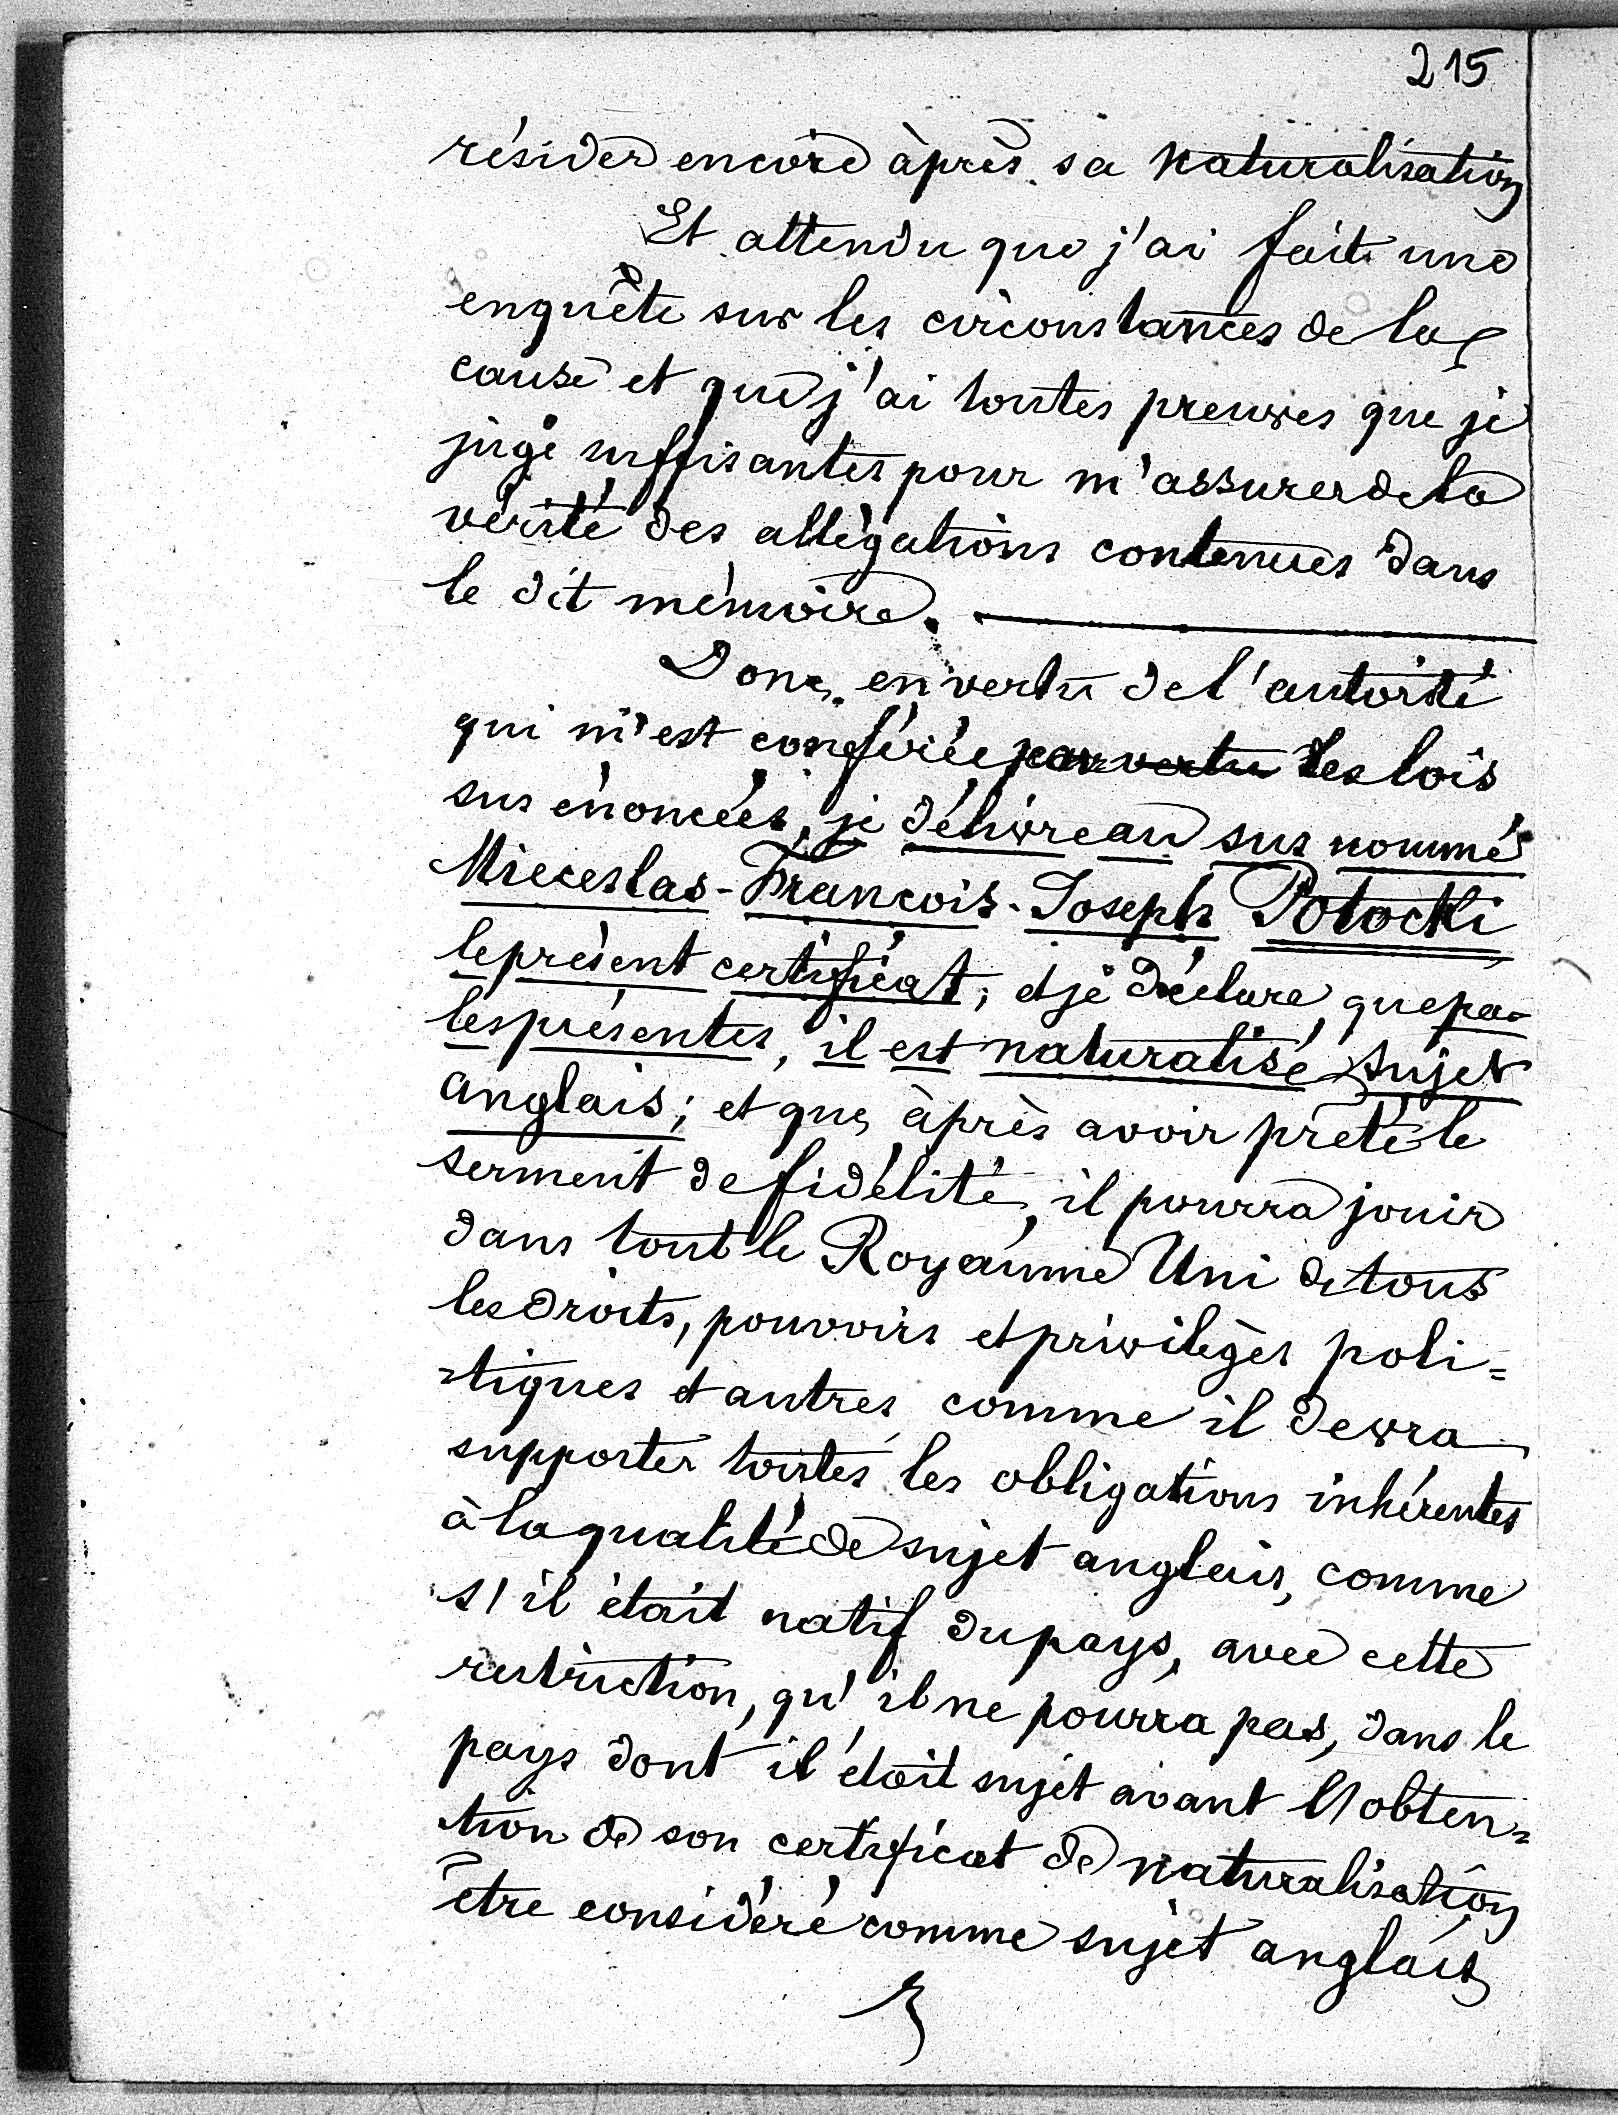 215
résider encore àprès sa naturalisation
Et attendu que j'ai fait une
enquête sur les circonstances de la
cause et que j'ai toutes preuves que je
juge suffisantes pour m'assurer de la
vérité des allégations contenues dans
le dit mémoire.
Donc, en vertu de l'autorité
qui m'est conférée par vertu les lois
sus énoncées, je délivre au sus nommé
Mieceslas-François-Joseph Potocki
le présent certificat; et je déclare, que par
les présentes, il est naturalisé sujet
anglais; et que, àprès avoir prêté le
serment de fidélité, il pourra jouir
dans tout le Royaume Uni de tous
les droits, pouvoirs et privilèges poli=
=tiques et autres comme il devra
supporter toutes les obligations inhérentes
à la qualité de sujet anglais, comme
s'il était natif du pays, avec cette
restriction, qu'il ne pourra pas, dans le
pays dont il était sujet avant l'obten=
tion de son certificat de naturalisation
être considéré comme sujet anglais